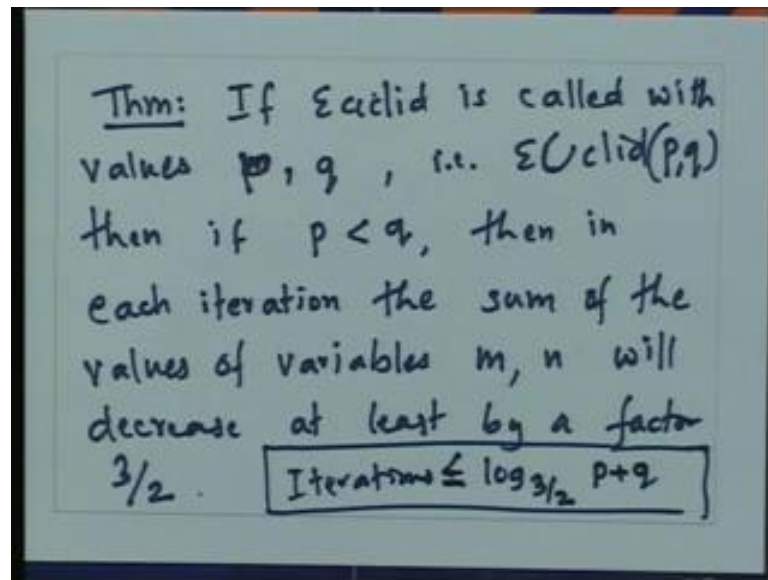 Thm: If Euclid is called with
values p, q , i.e. EUclid(p,q)
then if p < q, then in
each iteration the sum of the
values of variables m, n will
decrease at least by a factor
3/2 . Iterations ≤ log 3/2 p+q